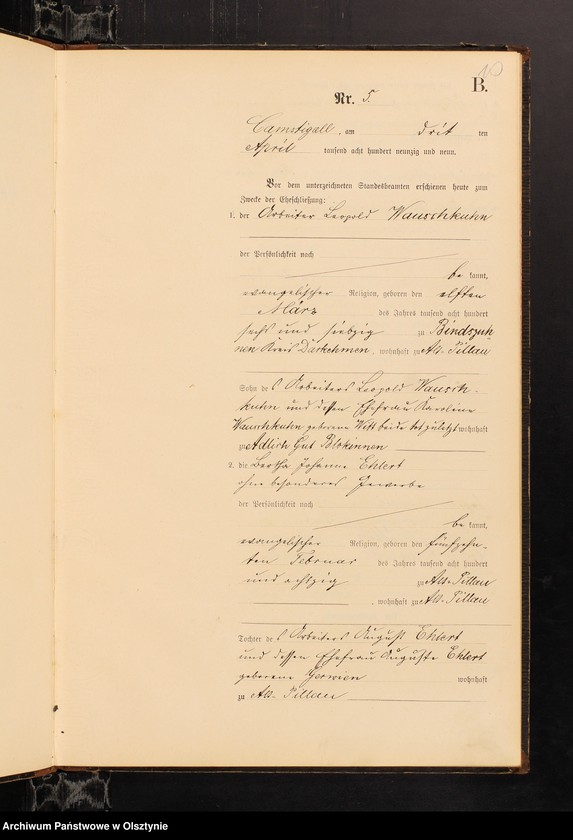 10
B.
Nr. 5.
Camstigall, am drit ten
April tausend acht hundert neunzig und neun.
Vor dem unterzeichneten Standesbeamten erschienen heute zum
Zwecke der Eheschließung:
1. der Arbeiter Leopold Wauschkuten
der Persönlichkeit nach
be kannt,
evangelischer Religion, geboren den elften
März des Jahres tausend acht hundert
sechs und siebzig zu Bindszuh
nen Kreis Darkehmen, wohnhaft zu Alt-Pillau
Sohn des Arbeiters Leopold Wausch-
kuhn und dessen Ehefrau Karoline
Wauschkuhn geborene Witt beide tot zuletzt wohnhaft
zu Adlich Gut Blokinnen
2. die Bertha Johanne Ehlert
ohne besonderes Gewerbe
der Persönlichkeit nach
be kannt,
evangelischer Religion, geboren den fünfzehn-
ten Februar des Jahres tausend acht hundert
und achtzig zu Alt-Pillau
, wohnhaft zu Alt-Pillau
Tochter des Arbeiters August Ehlert
und dessen Ehefrau Auguste Ehlert
geborene wohnhaft
zu Alt-Pillau
Archiwum Państwowe w Olsztynie